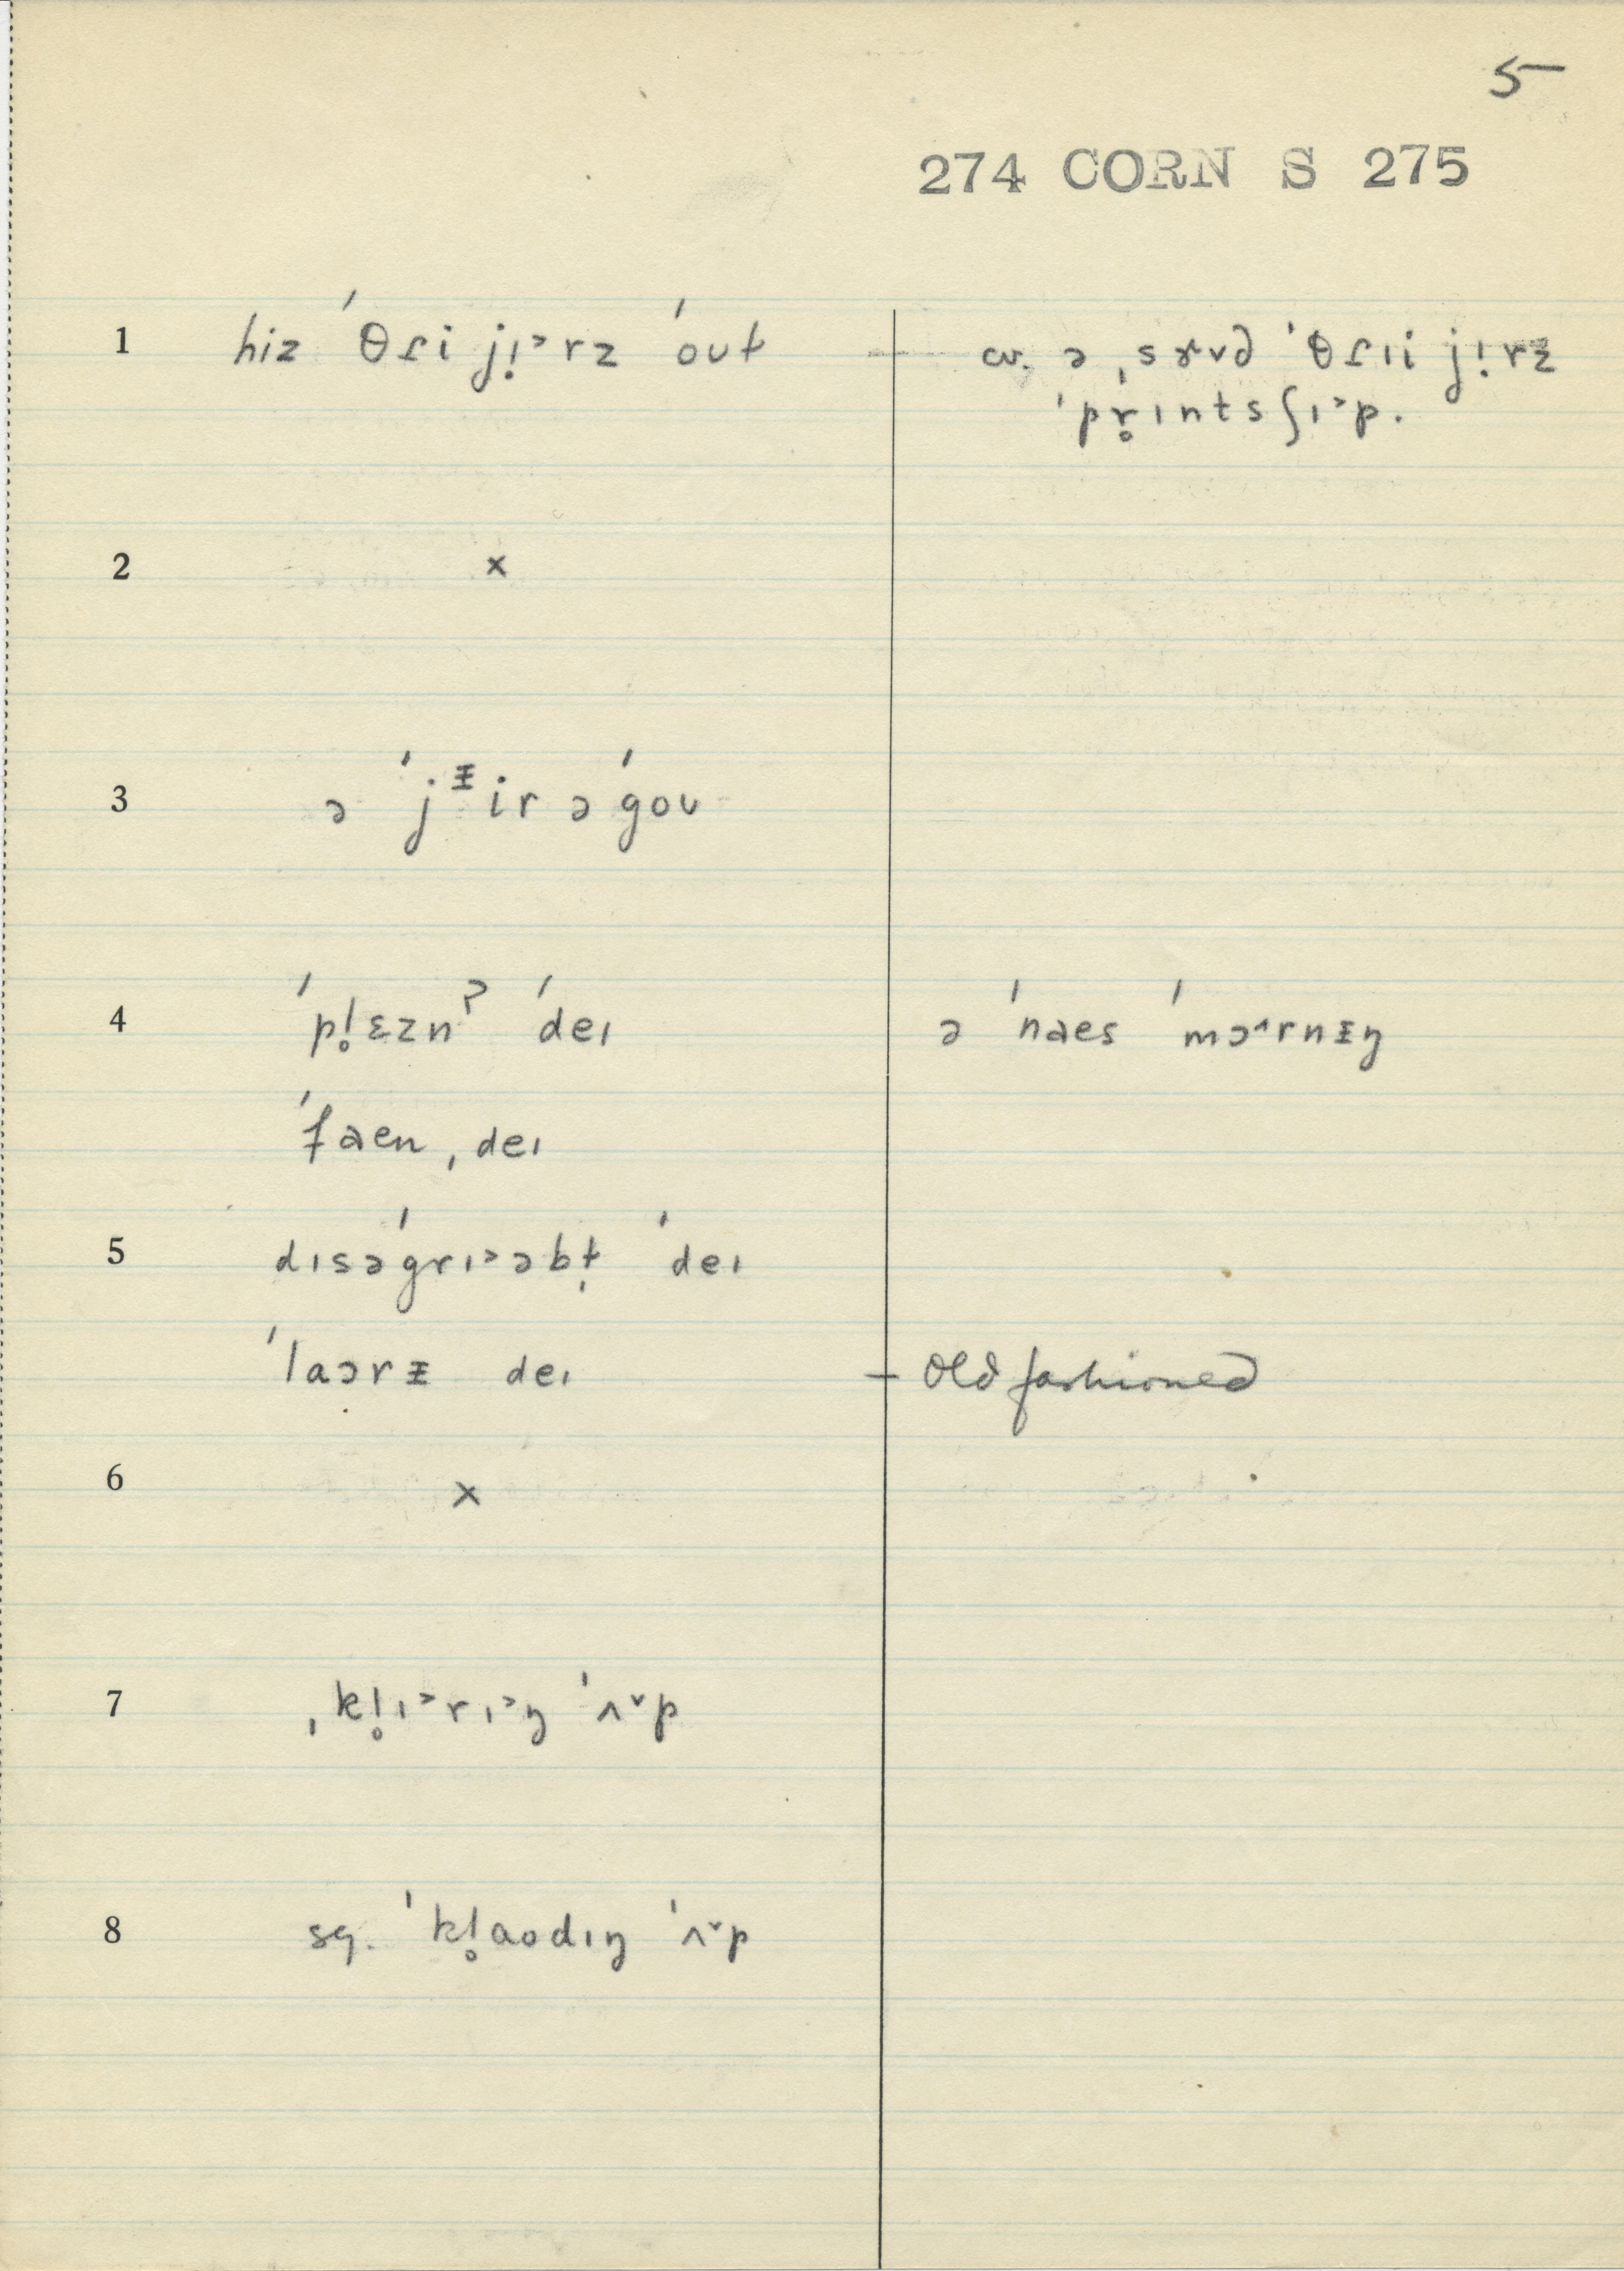 5
274 CORN S 275
1 hiz ˈθɾi jị˃rz ˈoʊɫ — cv. ə ˌsɤvd ˈθɾɪi jịrz
ˈpr̥ɪntsʃɪ˃p.
2 ×
3 ə ˈjᵻir əˈgoʊ
4 ˈpl̥ɛznˀ ˈdeɪ ə ˈnaes ˈmɔ˄rnᵻŋ
ˈfaen ˌdeɪ
5 dɪsəˈgrɪ˃əbɫ̩ ˈdeɪ
ˈlaɔrᵻ deɪ — old fashioned
6 ×
7 ˌkl̥ɪ˃rɪ˃ŋ ˈʌ˅p
8 sq. ˈkl̥aodɪŋ ˈʌ˅p